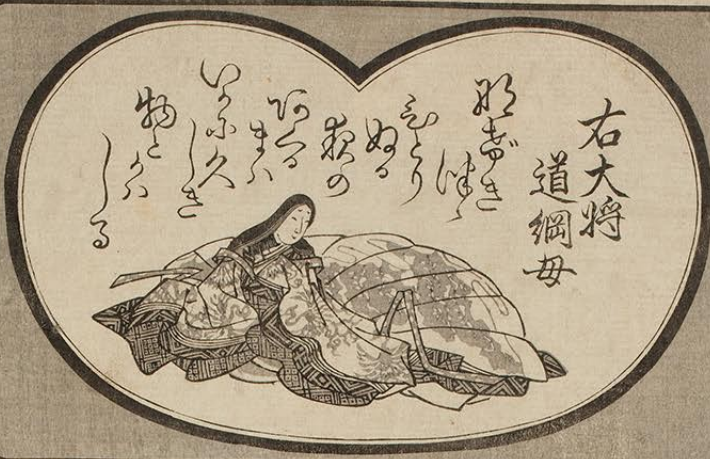 右大将
道綱母
那げき
つゝ
ひとり
ぬる
夜の
あくる
まハ
いかに久
しき
物と
かハ
しる